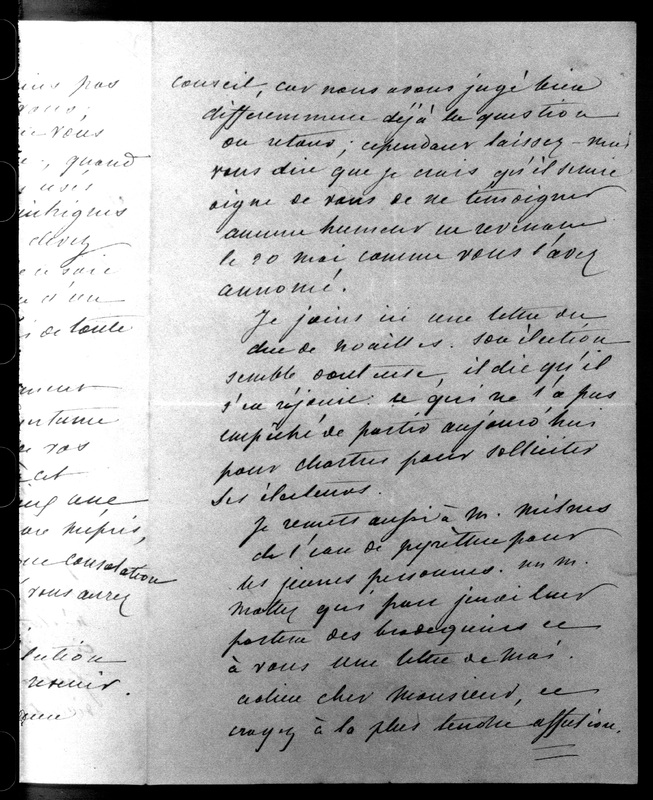 ins pas
vous,
vous
quand
usés
intrigues
devez
d'un
de toute
vos
cet
une
mépris,
consolation
vous aurez
revenir.
conseil, car nous avons jugé bien
differemment déjà la question
du retour; cependant laissez-moi
vous dire que je crois qu'il serait
digne de vous de ne témoigner
aucune humeur en revenant
le 20 mai comme vous l'avez
annoncé.
Je joins ici une lettre du
duc de Noailles. son élection
semble douteuse, il dit qu'il
s'en réjouit. ce qui ne l'a pas
empêché de partir aujourd'hui
pour chartres pour solliciter
ses électeurs.
Je remets aussi à M. Milnes
de l'eau de pyrèthre pour
les jeunes personnes. un M.
qui part jeudi leur
portera des brodequins et
à vous une lettre de moi.
adieu cher Monsieur, et
croyez à la plus tendre affection.